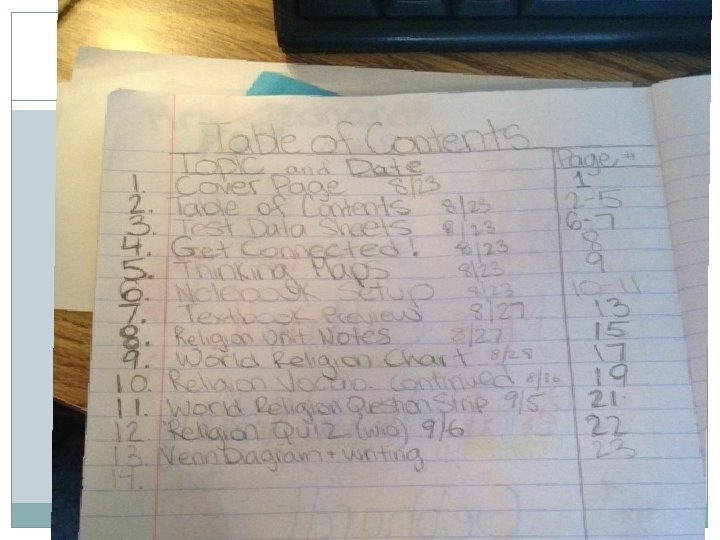 Table of Contents
Topic and Date Page #
1. Cover Page 8/23 1
2. Table of Contents 8/23 2-5
3. Test Data Sheets 8/23 6-7
4. Get Connected! 8/23 8
5. Thinking Maps 8/23 9
6. Notebook Setup 8/23 10-11
7. Textbook Preview 8/27 13
8. Religion Unit Notes 8/27 15
9. World Religion Chart 8/28 17
10. Religion Vocab. continued 8/30 19
11. World Religion Question Strip 9/5 21
12. Religion Quiz 9/6 22
13. Venn Diagram + writing 23
14.